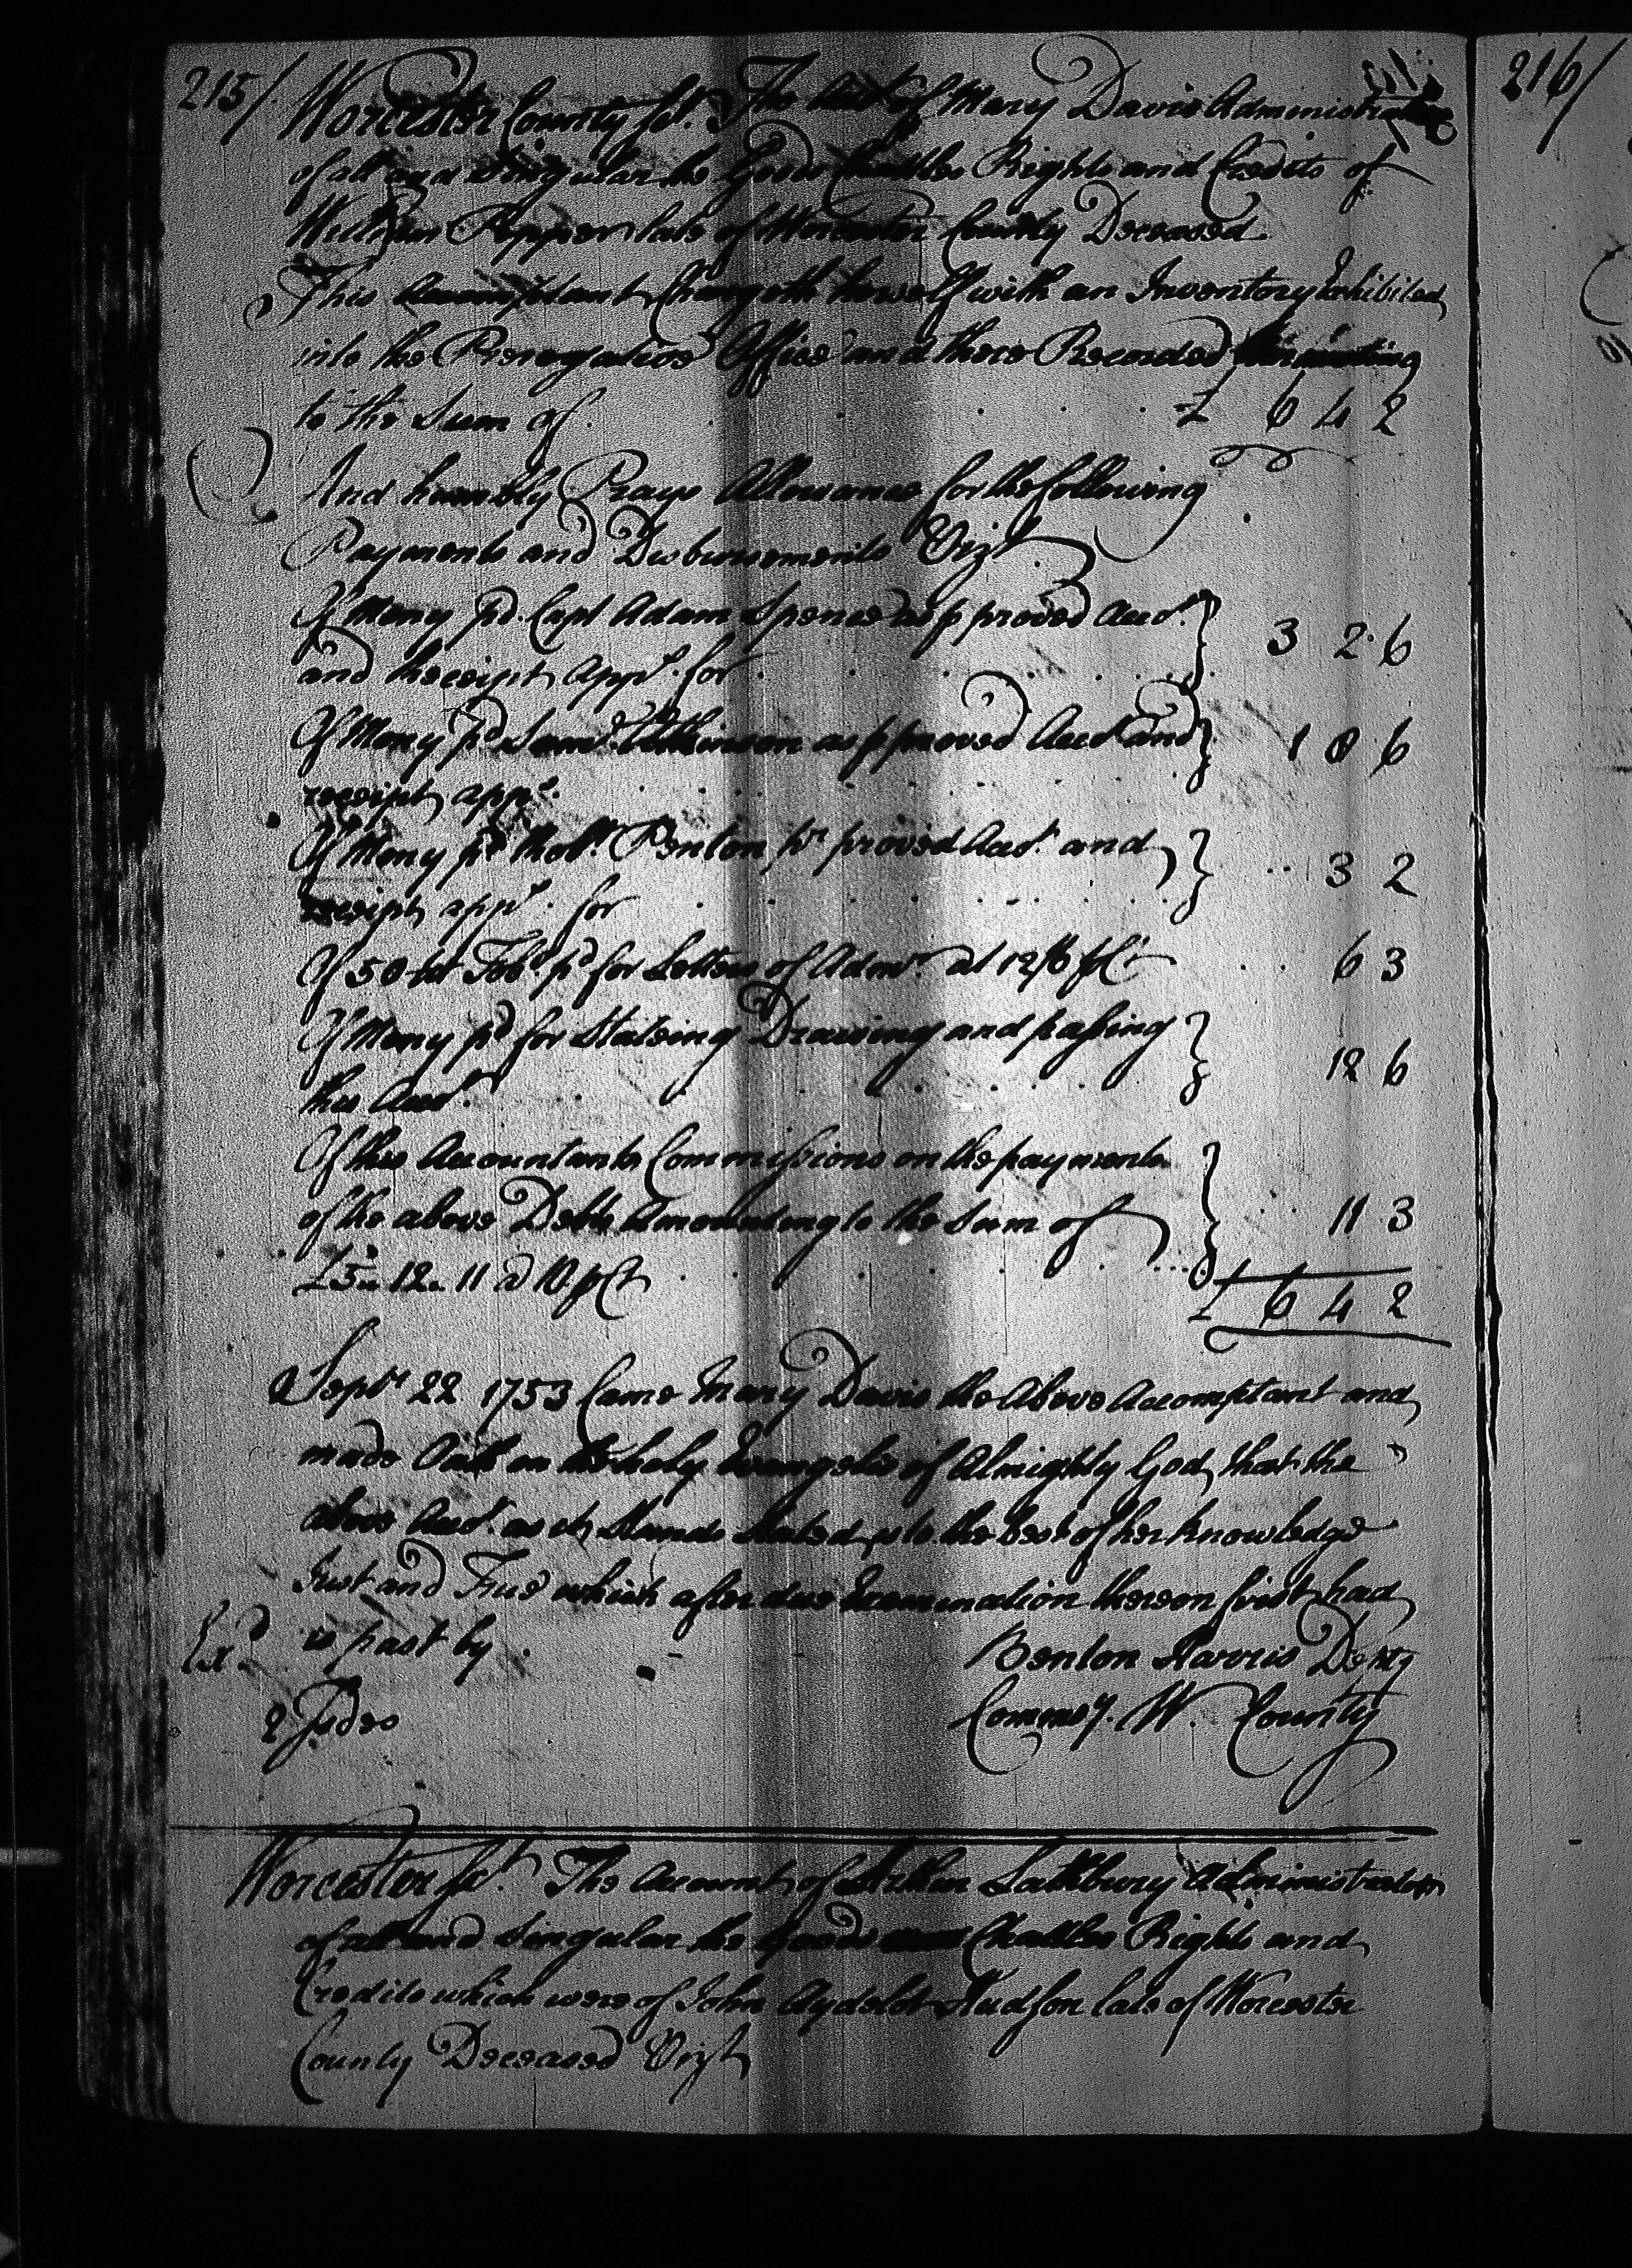 215/. 216/
Worcester County Sct. The Acct of Mary Davis Administratrix
of all and singular the Goods Chattles Rights and Credits of
William Pepper late of Worcester County Deceased
This Accomptant Chargeth herself with an Inventory Exhibited
into the Prerogative Office and there Recorded Amounting
to the Sum of . . . . . £ 6 4 2
And humbly Prays Allowance for the following
Payments and Disbursements Vizt
Of Mony pd. Capt Adam Spence as p proved Acct.
and Receipt appr. for . . . . 3 2 6
Of Mony pd Saml. as p proved Acct and
receipt appr. . . . . 1 8 6
Of Mony pd Robt. Penton pr proved Acct. and
receipt appr. for . . . . 3 2
Of 50 lb Tobo. pd for Letters of Admn. at 12/6 p Ct . . 6 3
Of Mony pd for Stateing Drawing and passing
this Acct. . . . . 12 6
Of this Accountants Commissions on the payments
of the above Debts Amounting to the Sum of . . 11 3
£5 " 12 " 11 @ 10 p Ct . . . . £ 6 4 2
Septr 22 1753 Came Mary Davis the Above Accomptant and
made Oath on the holy Evangels of Almighty God that the
above Acct. as it Stands Stated is to the best of her knowledge
Just and True which after due Examination thereon first had
Exd. is past by . - - Benton Harris Depty
2 Sides Commsy. W. County
Worcester Sct. The Account of Arthur Lathbury Administrator
of all and Singular the Goods Chattles Rights and
Credits which were of John Aydelot Hudson late of Worcester
County Deceased Vizt